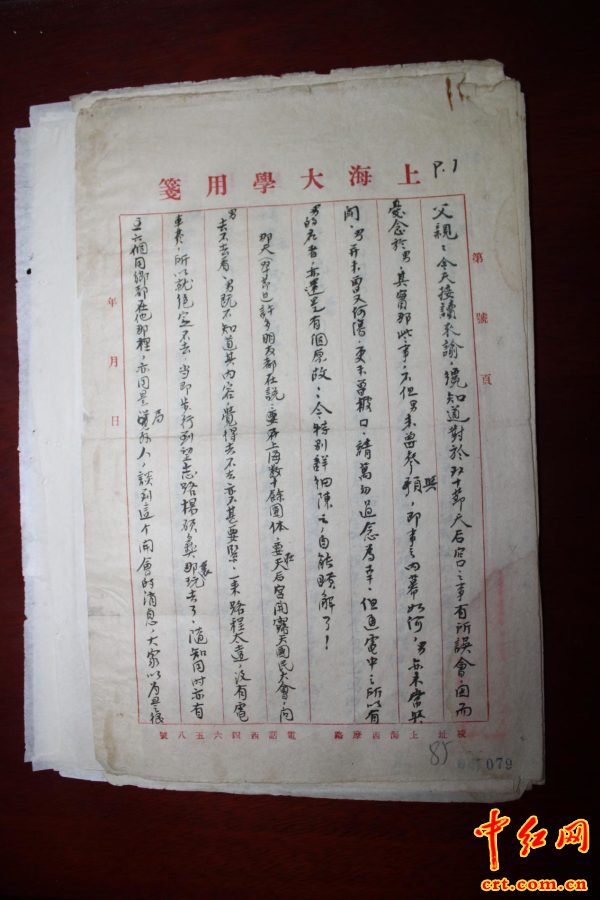 P.1
上海大學用箋
第 號 頁
父親：今天接讀來諭，境知道對於双十節天后宮之事有所誤會，因而
憂念於男，其實那些事，不但男未曾參與，即事之內幕如何，男亦未嘗與
聞，男並未曾受何傷，更未曾被口，請萬勿過念為幸，但通電中之所以有
男的名者，亦還是有個原故：今特別詳細陳之，自能瞭解了！
那天早前已許多朋友都在說，要有上海數十餘團体，要在天后宮開露天國民大會，問
男去不去看，男既不知道其內容，覺得去不去亦不甚要緊，一來路程太遠，沒有電
車費，所以就絕定不去，當即步行到望志路楊碩彝那裏玩去了，隨知同時亦有
五六個同鄉都在他那裡，亦同是局外人，談到這个開會的消息，大家以為是
年 月 日
校址上海西摩路 電話西四六五八號
85
079
中红网
crt.com.cn